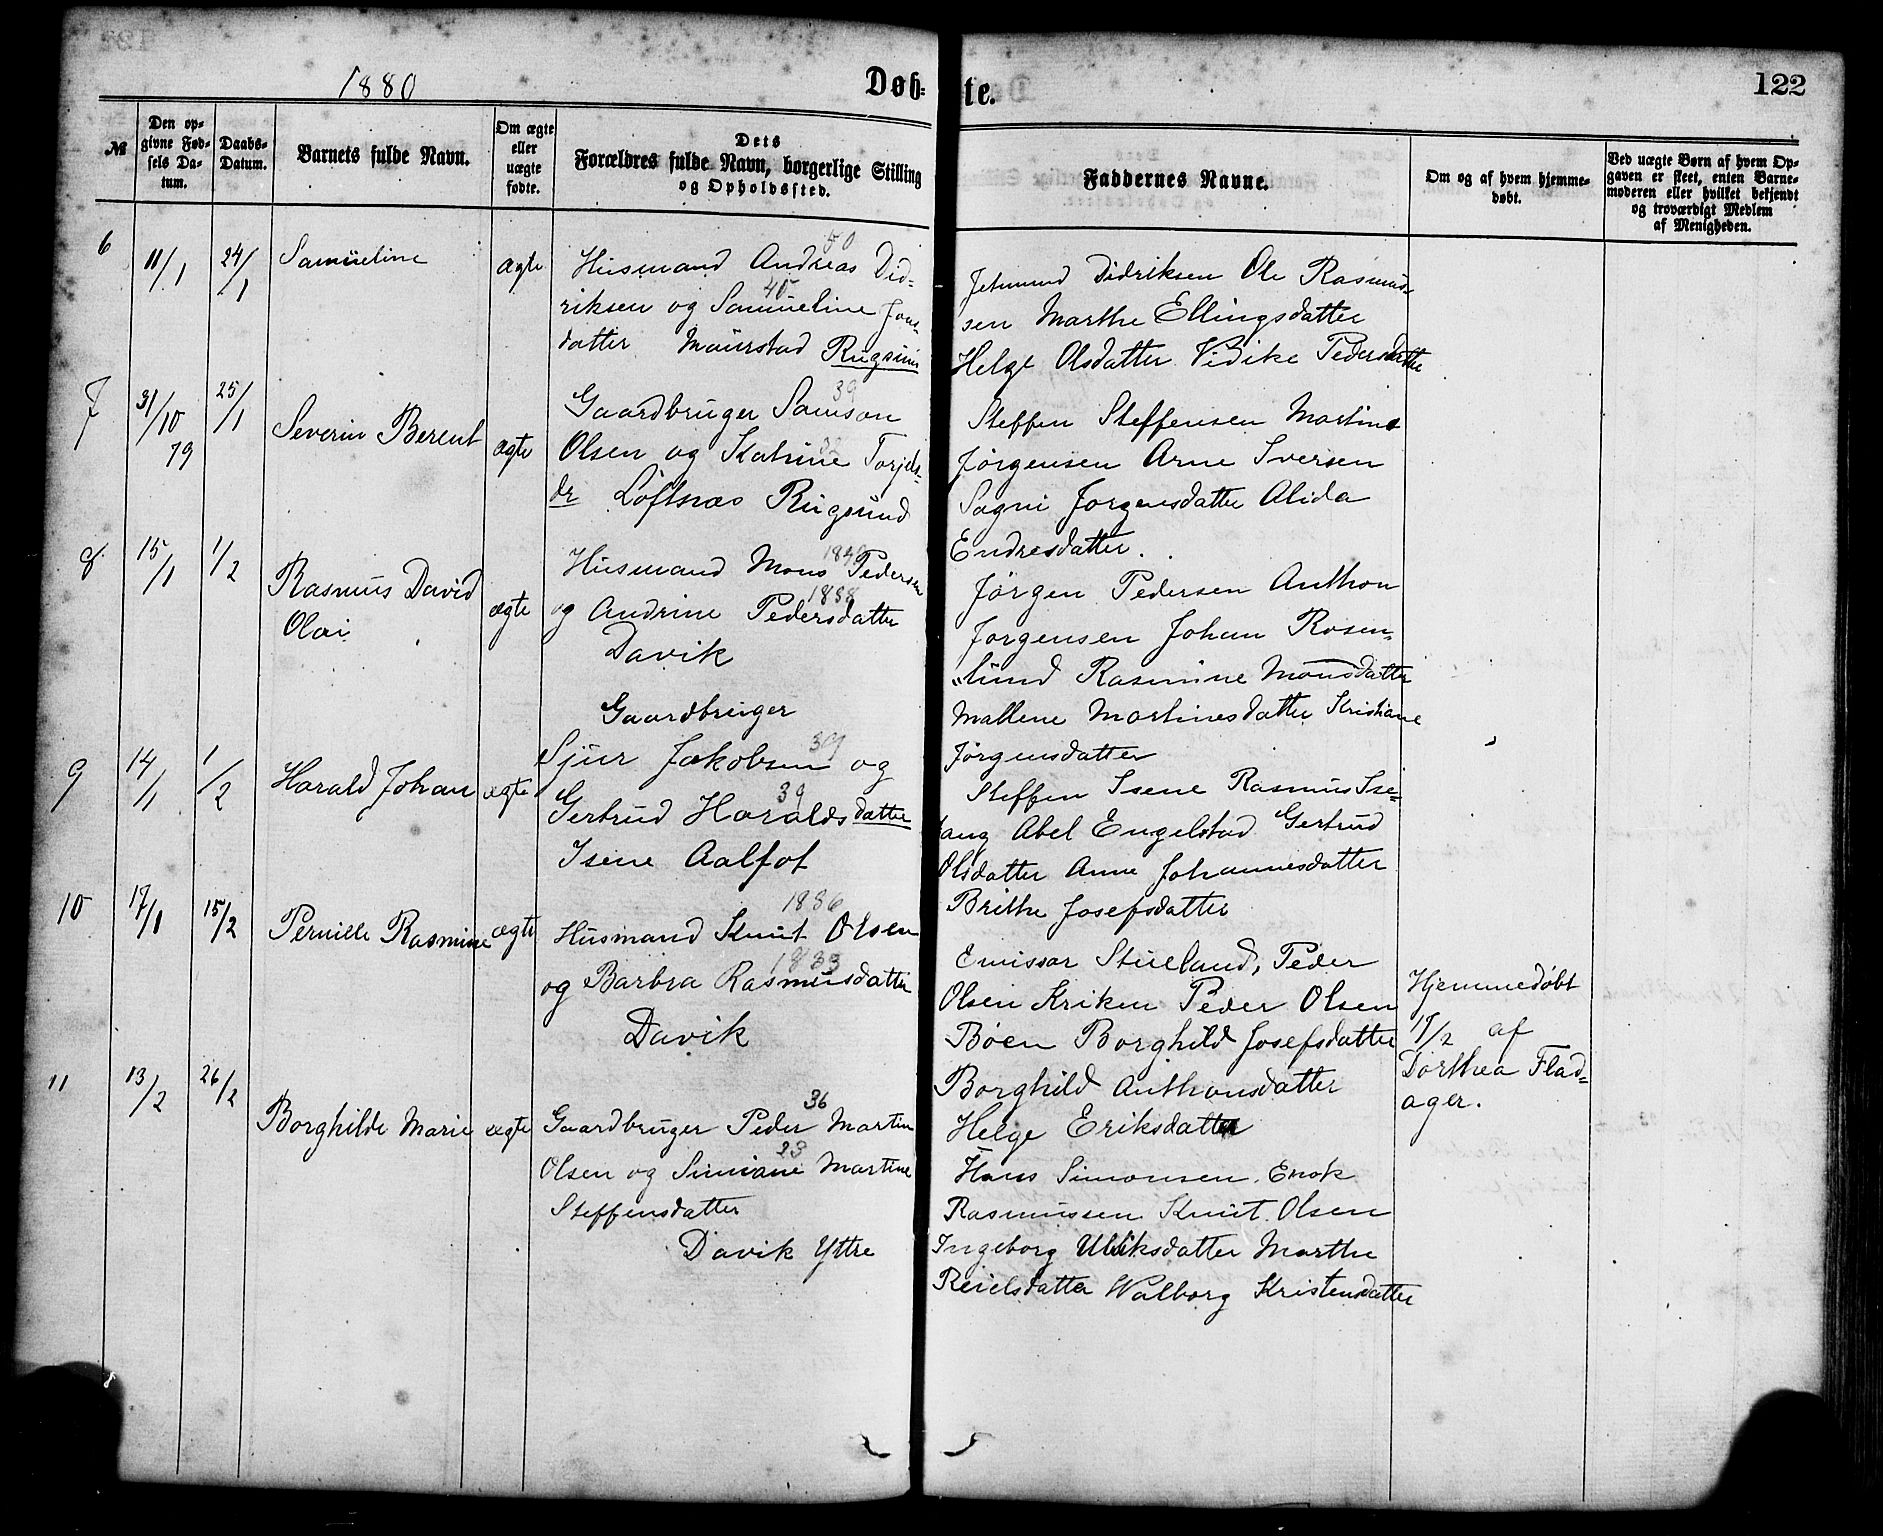 1880
Døb-
te.
122
№
Den opgivne Fødsels Datum.
Daabs-Datum.
Barnets fulde Navn.
Om ægte eller uægte fødte.
Dets Forældres fulde Navn, borgerlige Stilling og Opholdssted.
Faddernes Navne.
Om og af hvem hjemmedøbt.
Ved uægte Børn af hvem Opgaven er skeet, enten Barnemoderen eller hvilket bekjendt og troværdigt Medlem af Menigheden.
6
11/1
24/1
Samueline
ægte
50
Husmand Andreas Did-
45
riksen og Samueline Jons-
datter Maurstad Rugsund
Jetmund Didriksen Ole Rasmus-
sen Marthe Ellingsdatter
Helge Olsdatter Vidike Pedersdatter
7
31/10 79
25/1
Severin Berent
ægte
39
Gaardbruger Samson
32
Olsen og Katrine Torjels-
dr Løftnæs Rugsund
Steffen Steffensen Martin
Jørgensen Arne Iversen
Sagni Jørgensdatter Alida
Endresdatter.
8
15/1
1/2
Rasmus David
Olai
ægte
Husmand Mons Pedersen
1838
og Andrine Pedersdatter
Davik
Jørgen Pedersen Anthon
Jørgensen Johan Rosen-
lund Rasmine Monsdatter
Mallene Martinesdatter Kristiane
Jørgensdatter
9
14/1
1/2
Harald Johan
ægte
Gaardbruger
39
Sjur Jakobsen og
39
Gertrud Haraldsdatter
Isene Aalfot
Steffen Isene Rasmus Ise-
tang Abel Engelstad Gertrud
Olsdatter Anne Johannesdatter
Brithe Josefsdatter
10
17/1
15/2
Pernille Rasmine
ægte
1836
Husmand Knut Olsen
1833
og Barbra Rasmusdatter
Davik
Emissær Stueland, Peder
Olsen Kriken Peder Olsen
Bøen Borghild Josefsdatter
Borghild Anthonsdatter
Helge Eriksdatter
Hjemmedøbt
1/2 af
Dorthea Flad-
ager.
11
13/2
26/2
Borghilde Marie
ægte
36
Gaardbruger Peder Martin
23
Olsen og Simiane Martine
Steffensdatter
Davik Yttre
Hans Simonsen. Enok
Rasmussen Knut Olsen
Ingeborg Ulriksdatter Marthe
Reielsdatter Walborg Kristensdatter